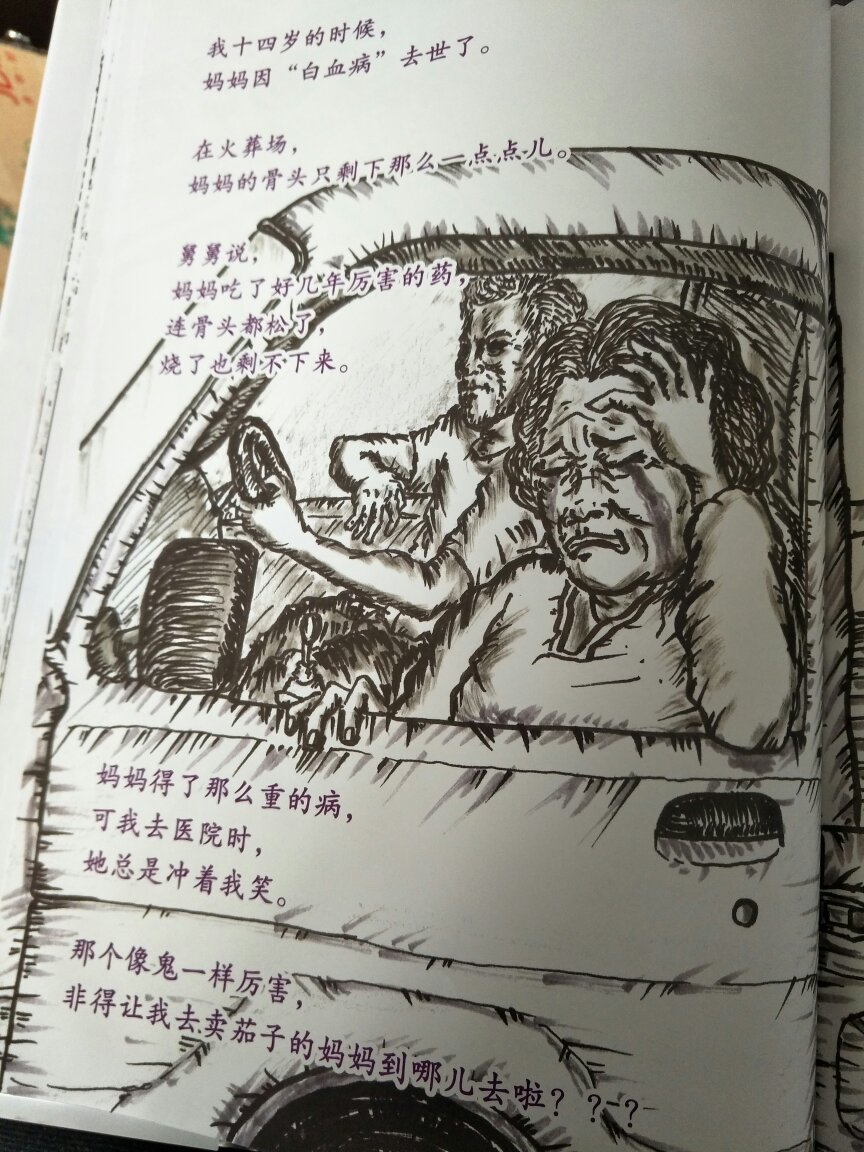 我十四岁的时候，
妈妈因“白血病”去世了。
在火葬场，
妈妈的骨头只剩下那么一点点儿。
舅舅说，
妈妈吃了好几年厉害的药，
连骨头都松了，
烧了也剩不下来。
妈妈得了那么重的病，
可我去医院时，
她总是冲着我笑。
那个像鬼一样厉害，
非得让我去卖茄子的妈妈到哪儿去啦？？？